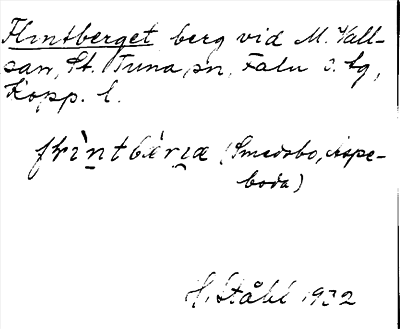 Flintberget berg vid M. Vall-
san, St. Tuna sn, Falu s. tg,
Kopp. l.
(Smedsbo, Aspe-
boda)
H. Ståhl 1932